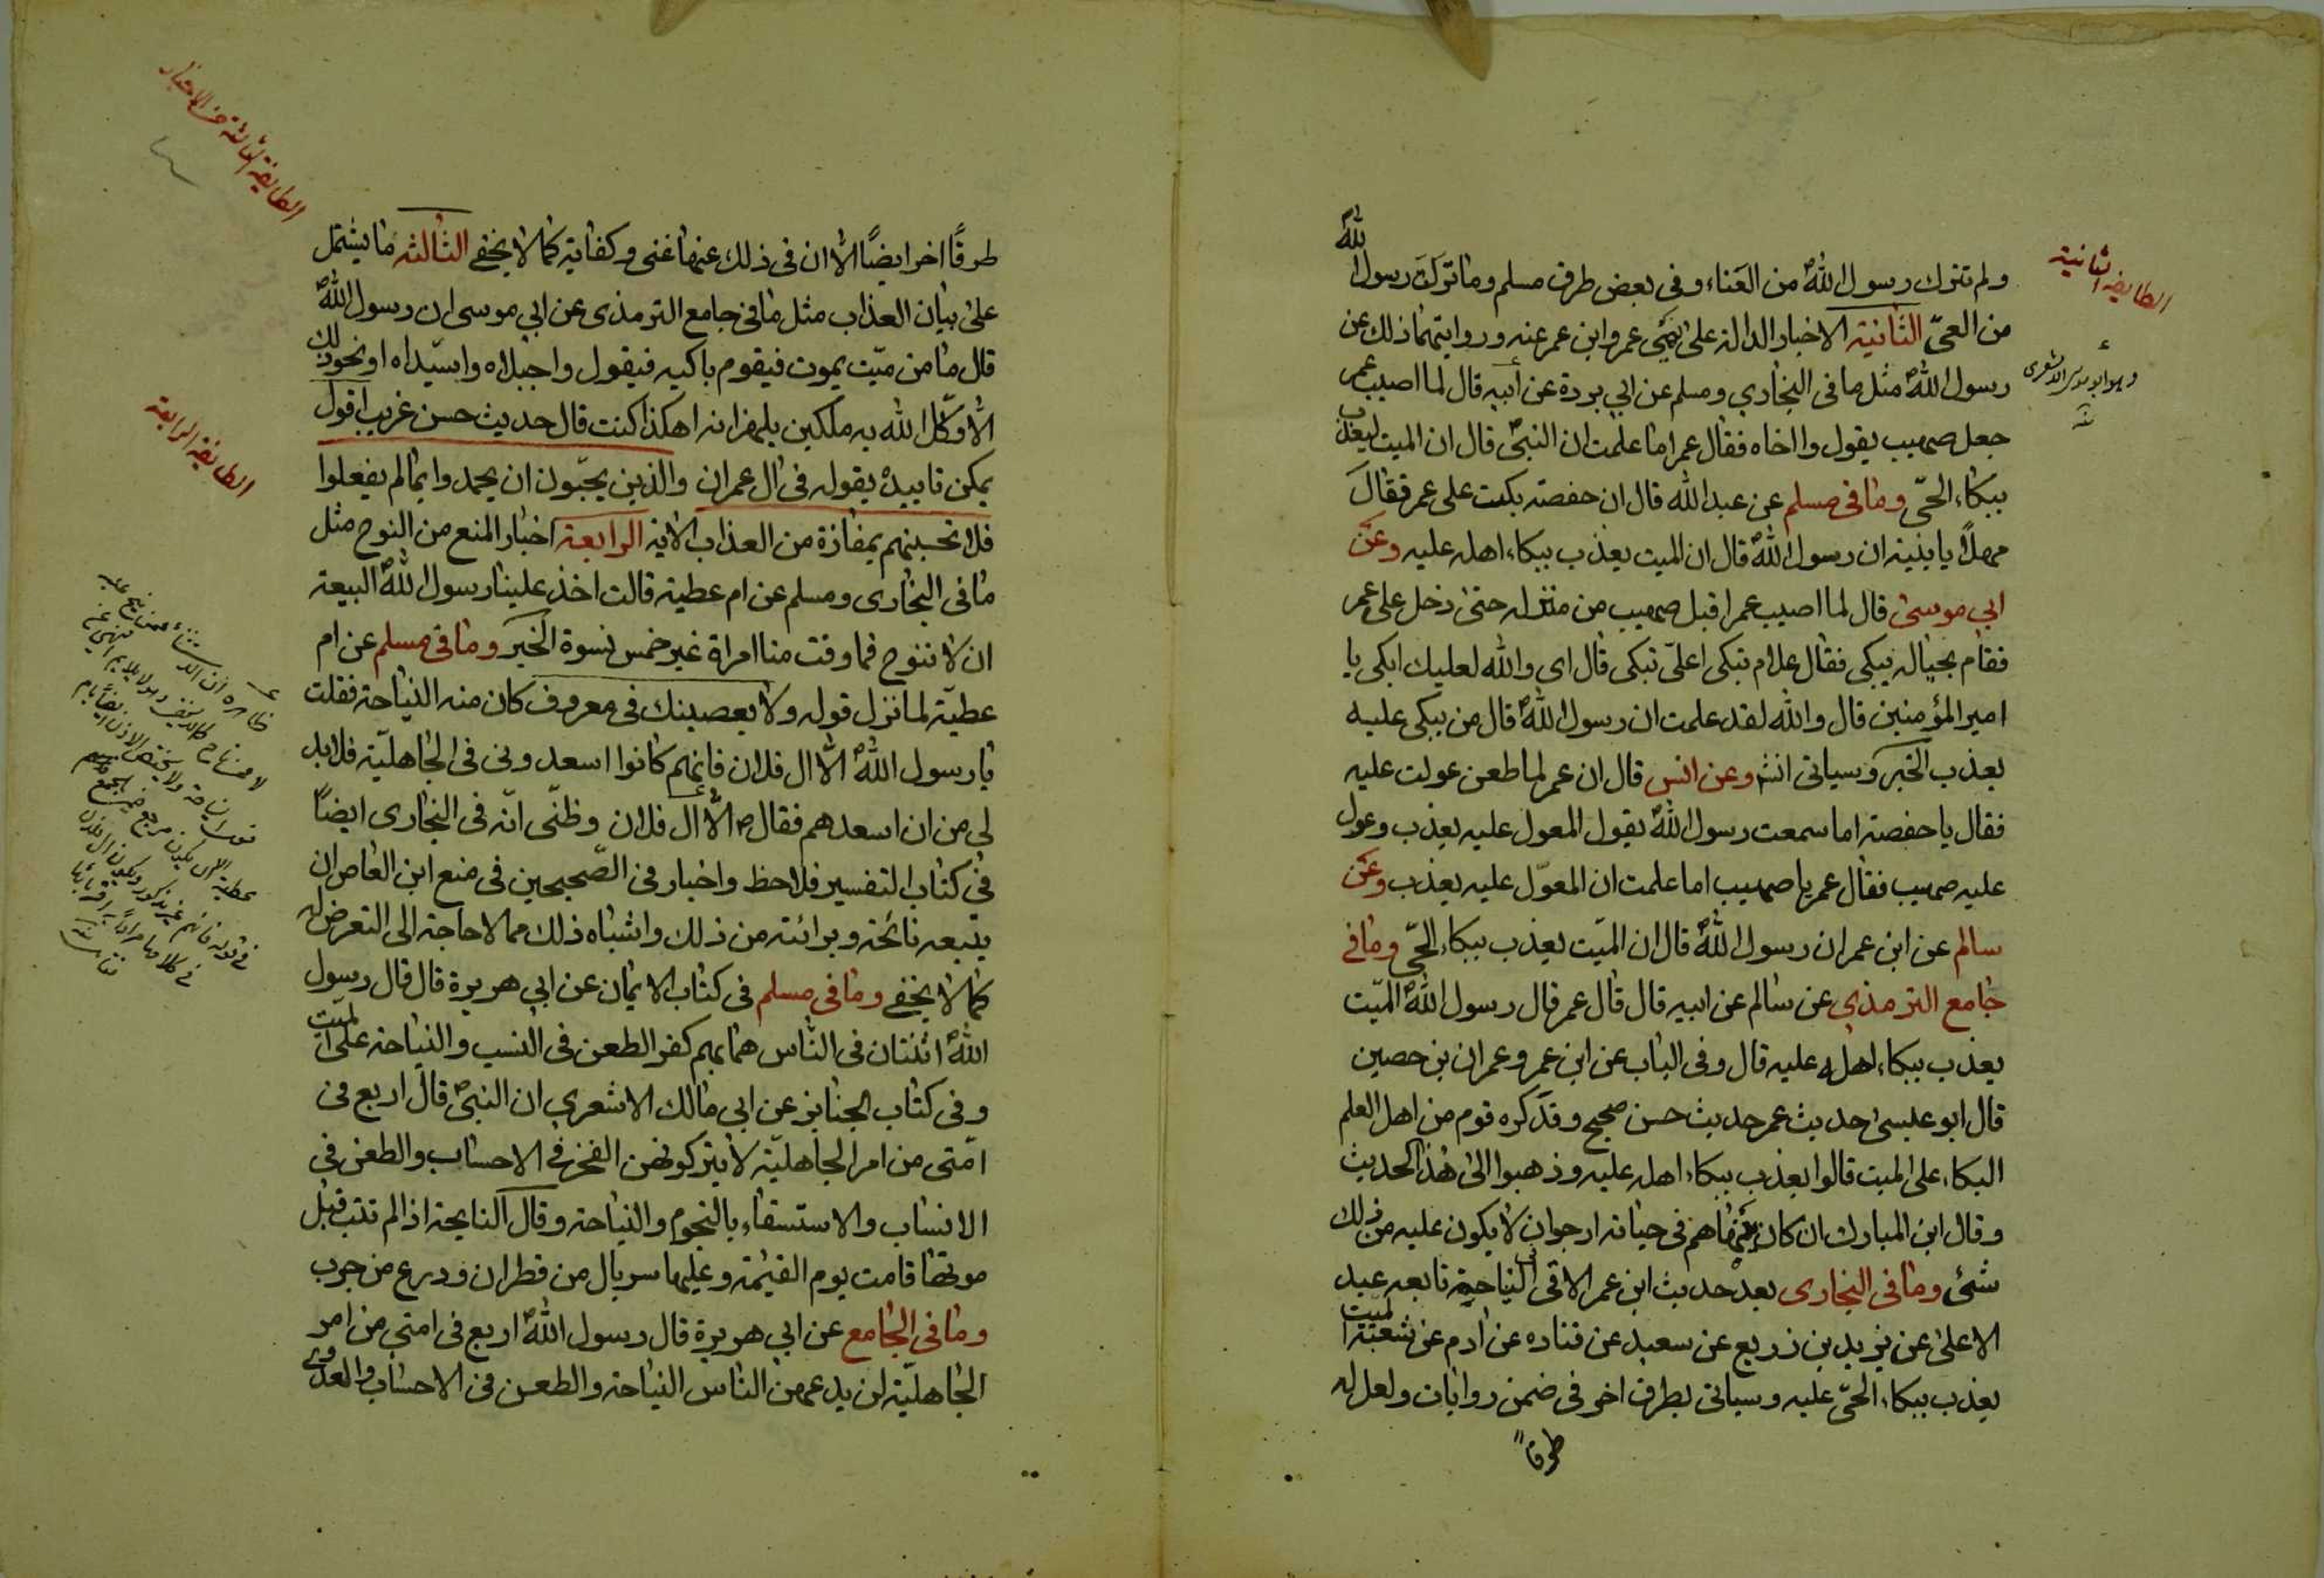 ولم تترك رسول اللهؐ من العَناء وفى بعض طرق مسلم وما تركت رسول اللهؐ
من العىّ الثانية الاخبار الدالة على نهى عمر وابن عمر عنه وروايتهما ذلك عن
رسول اللهؐ مثل ما فى البخاري ومسلم عن ابي بردة عن أبيه قال لما اصيب عمر
جعل صهيب يقول وا اخاه فقال عمر اما علمت ان النبىؐ قال ان الميت ليعذب
ببكاء الحىّ وما فى مسلم عن عبد الله قال ان حفصة بكت على عمر فقال
مهلًا يا بنية ان رسول اللهؐ قال ان الميت يعذب ببكاء اهله عليه وعن
ابي موسى قال لما اصيب عمر اقبل صهيب من منزله حتى دخل على عمر
فقام بحياله يبكى فقال علام تبكى اعلىّ تبكى قال اى والله لعليك ابكى يا
امير المؤمنين قال والله لقد علمت ان رسول اللهؐ قال من يبكى عليه
يعذب الخبر وسياتى انش وعن انس قال ان عمر لما طعن عولت عليه
فقال يا حفصة اما سمعت رسول اللهؐ يقول المعول عليه يعذب وعول
عليه صهيب فقال عمر يا صهيب اما علمت ان المعوّل عليه يعذب وعن
سالم عن ابن عمر ان رسول اللهؐ قال ان الميّت يعذب ببكاء الحىّ وما في
جامع الترمذي عن سالم عن ابيه قال قال عمر قال رسول اللهؐ الميّت
يعذب ببكاء اهله عليه قال وفى الباب عن ابن عمر وعمران بن حصين
قال ابو عيسى حديث عمر حديث حسن صحيح وقد كره قوم من اهل العلم
البكاء على الميت قالوا يعذب ببكاء اهله عليه وذهبوا الى هذا الحديث
وقال ابن المبارك ان كان ينهاهم فى حياته ارجو ان لا يكون عليه من ذلك
شئ وما فى البخارى بعد حديث ابن عمر الاتى فى النياحة تابعه عبد
الاعلى عن يزيد بن زريع عن سعيد عن قتاده عن ادم عن شعبة الميت
يعذب ببكاء الحىّ عليه وسياتى بطرق اخر فى ضمن روايات ولعل له
طرقاً
الطايفة الثانية
وهو ابو موسى الاشعرى
طرقًا اخر ايضًا الا ان فى ذلك عنها غنى وكفاية كما لا يخفى الثالثة ما يشتمل
على بيان العذاب مثل ما فى جامع الترمذى عن ابي موسى ان رسول اللهؐ
قال ما من ميّت يموت فيقوم باكيه فيقول وا جبلاه وا سيّداه او نحو ذلك
الا وكّل الله به ملكين يلهزانه اهكذا كنت قال حديث حسن غريب اقول
يمكن تاييده بقوله فى ال عمران والذين يحبّون ان يحمدوا بما لم يفعلوا
فلا تحسبنهم بمفازة من العذاب الاية الرابعة اخبار المنع من النوح مثل
ما فى البخارى ومسلم عن ام عطية قالت اخذ علينا رسول اللهؐ البيعة
ان لا ننوح فما وفت منا امراة غير خمس نسوة الخبر وما فى مسلم عن ام
عطيّة لما نزل قوله ولا يعصينك فى معروف كان منه النياحة فقلت
يا رسول اللهؐ الّا ال فلان فانهم كانوا اسعدونى فى الجاهليّة فلا بد
لى من ان اسعدهم فقال ص الّا ال فلان وظنّى انّه فى البخارى ايضاً
فى كتاب التفسير فلاحظ واخبار فى الصّحيحين فى منع ابن العاص ان
يتبعه نائحة وبرائته من ذلك واشباه ذلك مما لا حاجة الى التعرض له
كما لا يخفى وما فى مسلم فى كتاب الايمان عن ابي هريرة قال قال رسول
اللهؐ اثنتان فى الناس هما بهم كفر الطعن فى النسب والنياحة على الميّت
وفى كتاب الجنايز عن ابى مالك الاشعري ان النبىؐ قال اربع فى
امّتى من امر الجاهليّة لا يتركونهن الفخر فى الاحساب والطعن فى
الانساب والاستسقاء بالنجوم والنياحة وقال النايحة اذا لم تتب قبل
موتها قامت يوم القيٰمة وعليها سربال من قطران ودرع من جرب
وما فى الجامع عن ابي هريرة قال رسول اللهؐ اربع فى امتي من امر
الجاهليّة لن يدعهن الناس النياحة والطعن فى الاحساب والعدوى
الطايفة الثالثة من الاخبار
الطايفة الرابعة